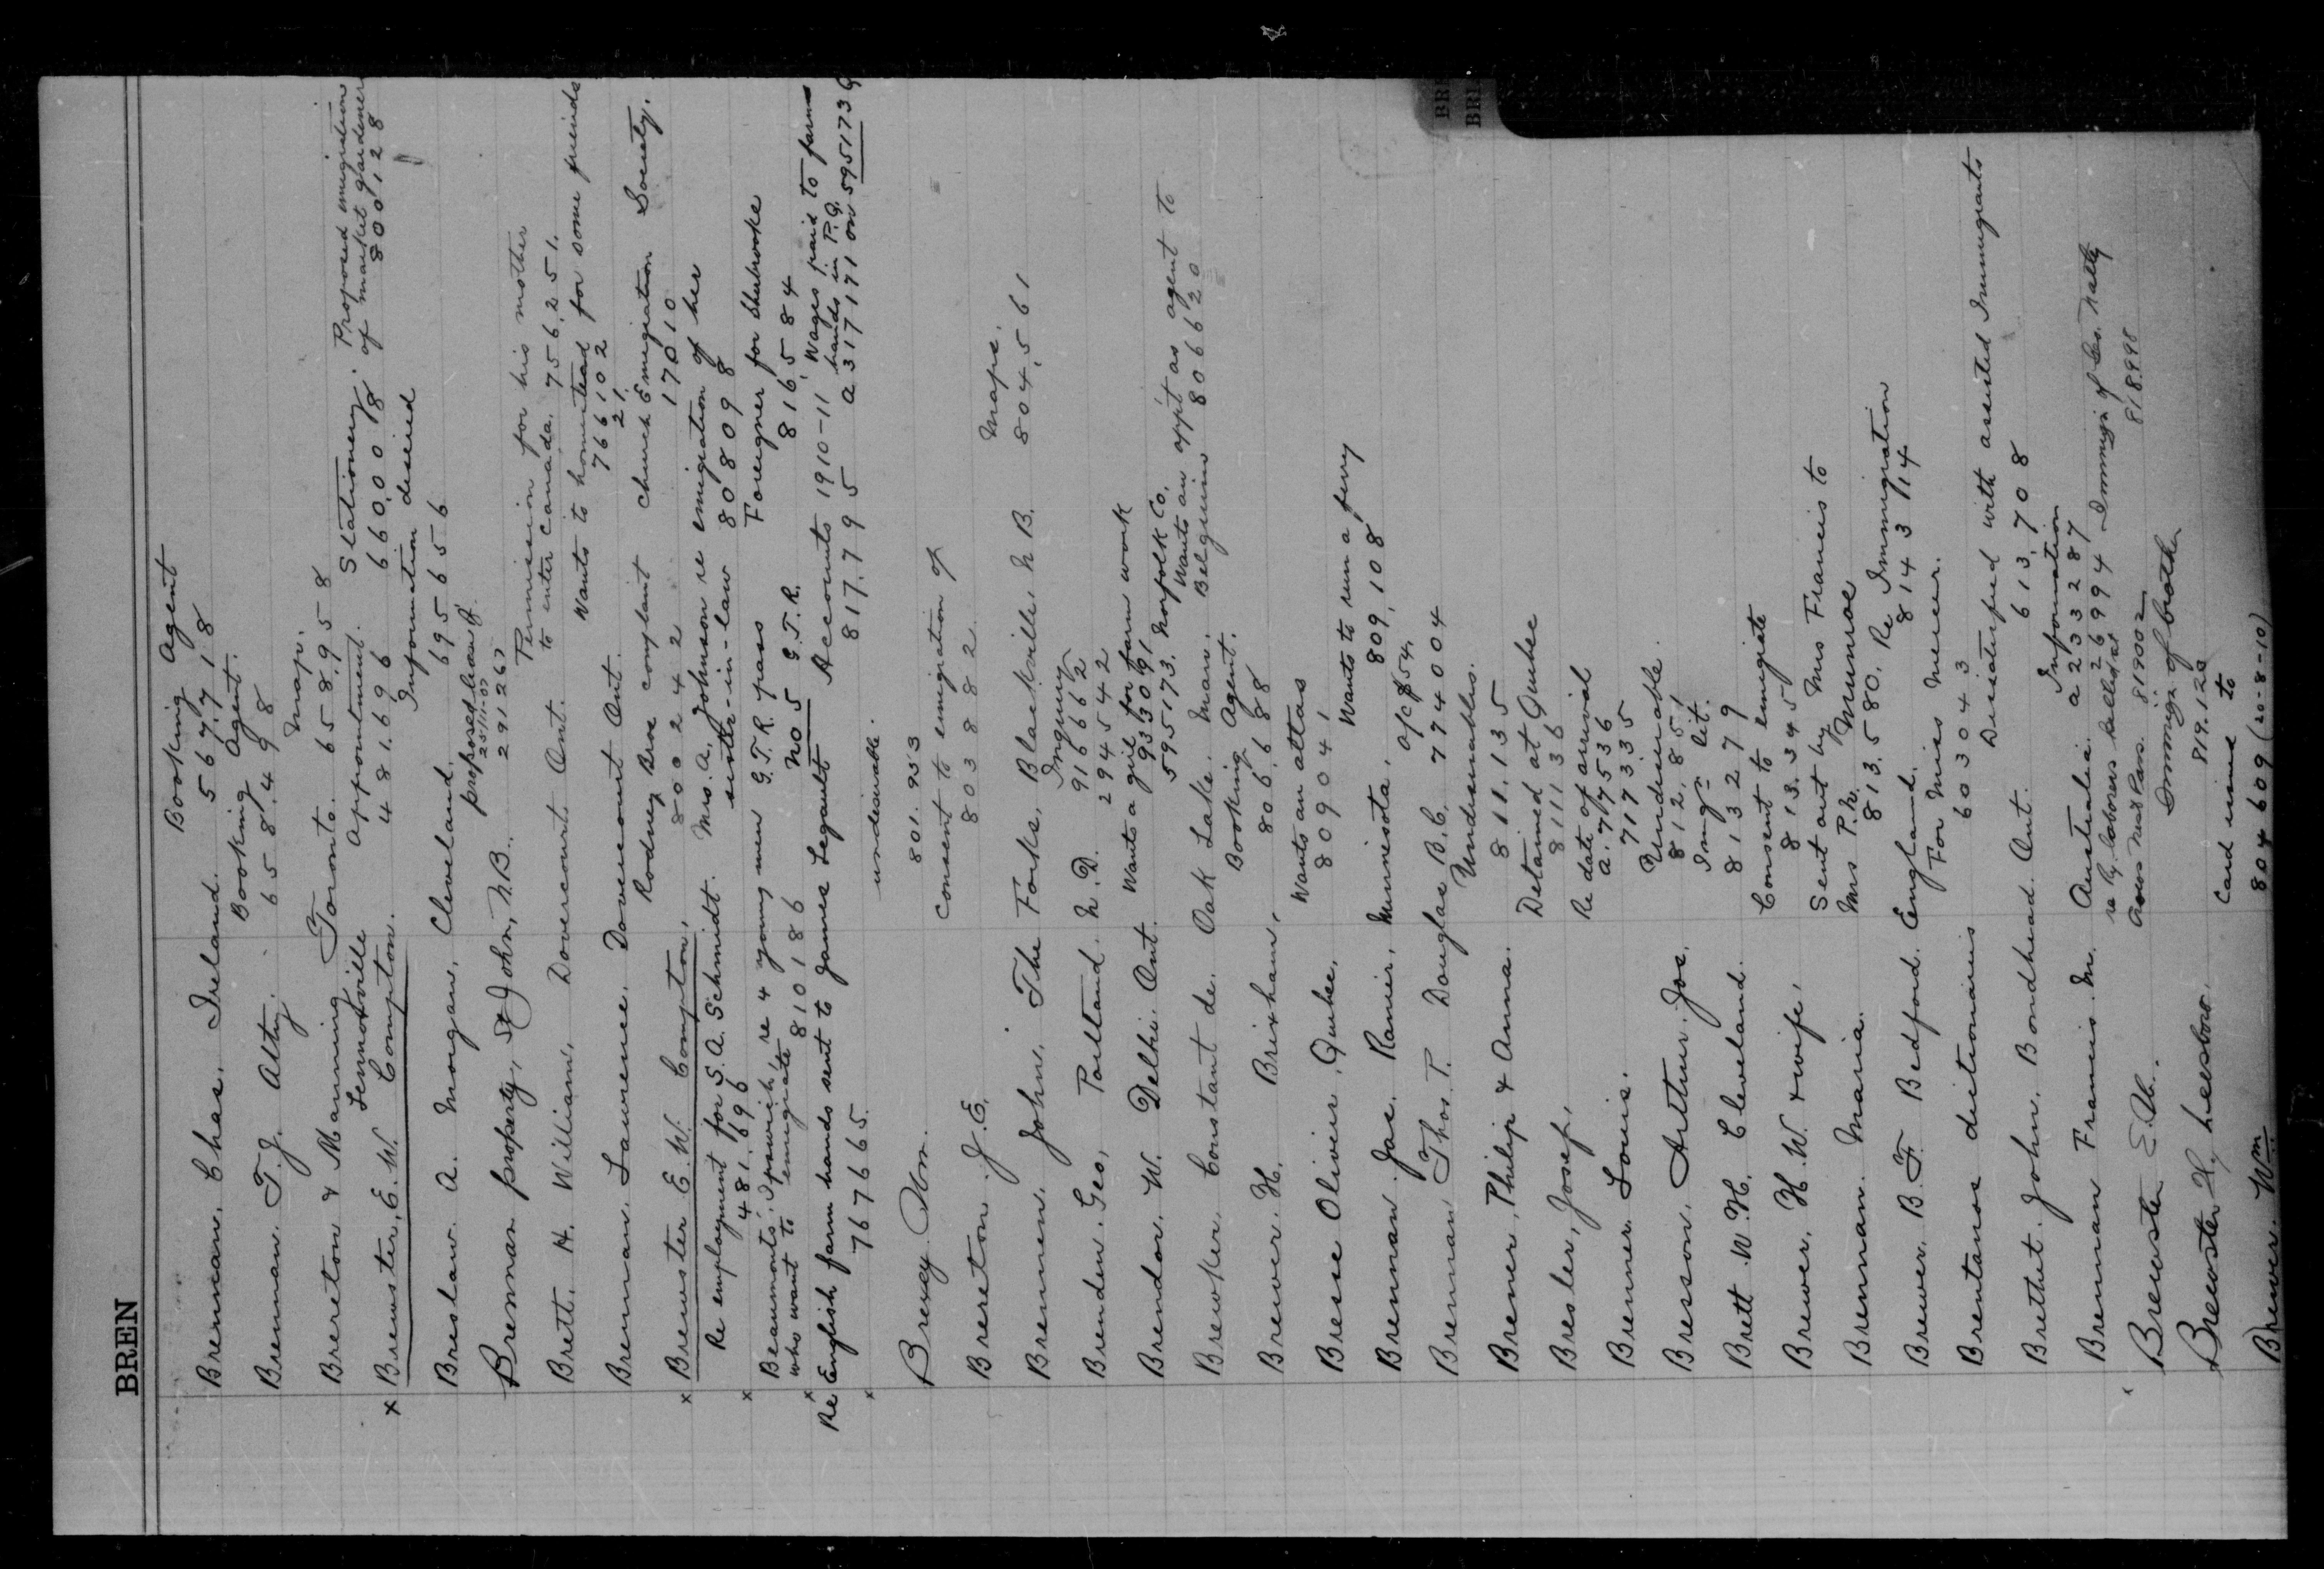 BREN
BRE
BRE
Brennan, Chas. Ireland. Booking Agent
567718
Brennan. T. J. Booking Agent.
658.498
Brereton & Manning Toronto. Maps.
658,958
x Brewster, E. W. Lennoxville Compton. Appointment. 481.696 Stationery. 660,008 Proposed emigration of market gardeners 800128
Breslaw. A. Morgan, Cleveland. Information desired
695656
Brennan property, St John, N.B. proposed lease of.
25/11-07
291267
Brett. H. William, Dovercourt. Ont. Permission for his mother
to enter Canada. 756,251.
Wants to homestead for some friends
766102
21.
Brennan. Laurence. Dovercourt Ont.
x Brewster E. W. Compton, Rodney Bros complaint 800242 Church Emigration Society. 17010
Re employment for S. A. Schmidt. 481.696 Mrs. A. Johnson re emigration of her
sister-in-law 808098
x Beaumont, Ipswich, re 4 young men who want to emigrate 810186 G.T.R. pass No 5 G.T.R. Foreigner for Sherbrooke 816,584
x Re English farm hands sent to James Legault 767665. Accounts 1910-11 817.795 Wages paid to farm hands in P.Q. a 317171 on 595173 Q
x
Brexey Wm. undesirable.
801.953
Brereton. J. E. Consent to emigration of
803882
Brennen. John. The Forks, Blackville, N B. Maps.
804,561
Brenden. Geo, Portland. N. D. Inquiry
916662
294542
Brendor. W. Delhi. Ont. Wants a girl for farm work
933091
595173. Norfolk Co.
Brewker. Constant de. Oak Lake. Man. Wants an appt as agent to
Belgium 806620
Brewer. H. Brixham, Booking Agent.
806,688
Bresse Olivier, Quebec, Wants an atlas
809041
Brennan. Jas. Ranier, Minnesota, Wants to run a ferry
809,108
Brennan Thos. T. Douglas B.C. 774004
Brener, Philip & Anna. Undesirables.
811,135
Bresler, Josef, Detained at Quebec
811136
Brenner. Louis. Re date of arrival
a. 717536
717335
Bresson, Arthur Jos. Undesirable.
812,851
Brett. W. H. Cleveland. Imgn lit.
813279
Brewer, H. W. & wife, Consent to emigrate
813.345
Brennan. Maria. Sent out by Mrs Francis to
Mrs P.N. Munroe
813,580.
Brewer. B. F. Bedford. England. Re Immigration
814314
Brentanos dictionaries For Miss Mercer.
603043
Brethet. John. Bondhead. Ont. Dissatisfied with assisted Immigrants
613,708
Brennan Francis. M. Australia. Information
a 233287
Brewster E. W. re Ry. laborers 26994 Immign of
819002 818998
Brewster H, Leesboro. Immign of brother
819.120
Brewer. Wm Card issued to
804609 (20-8-10)